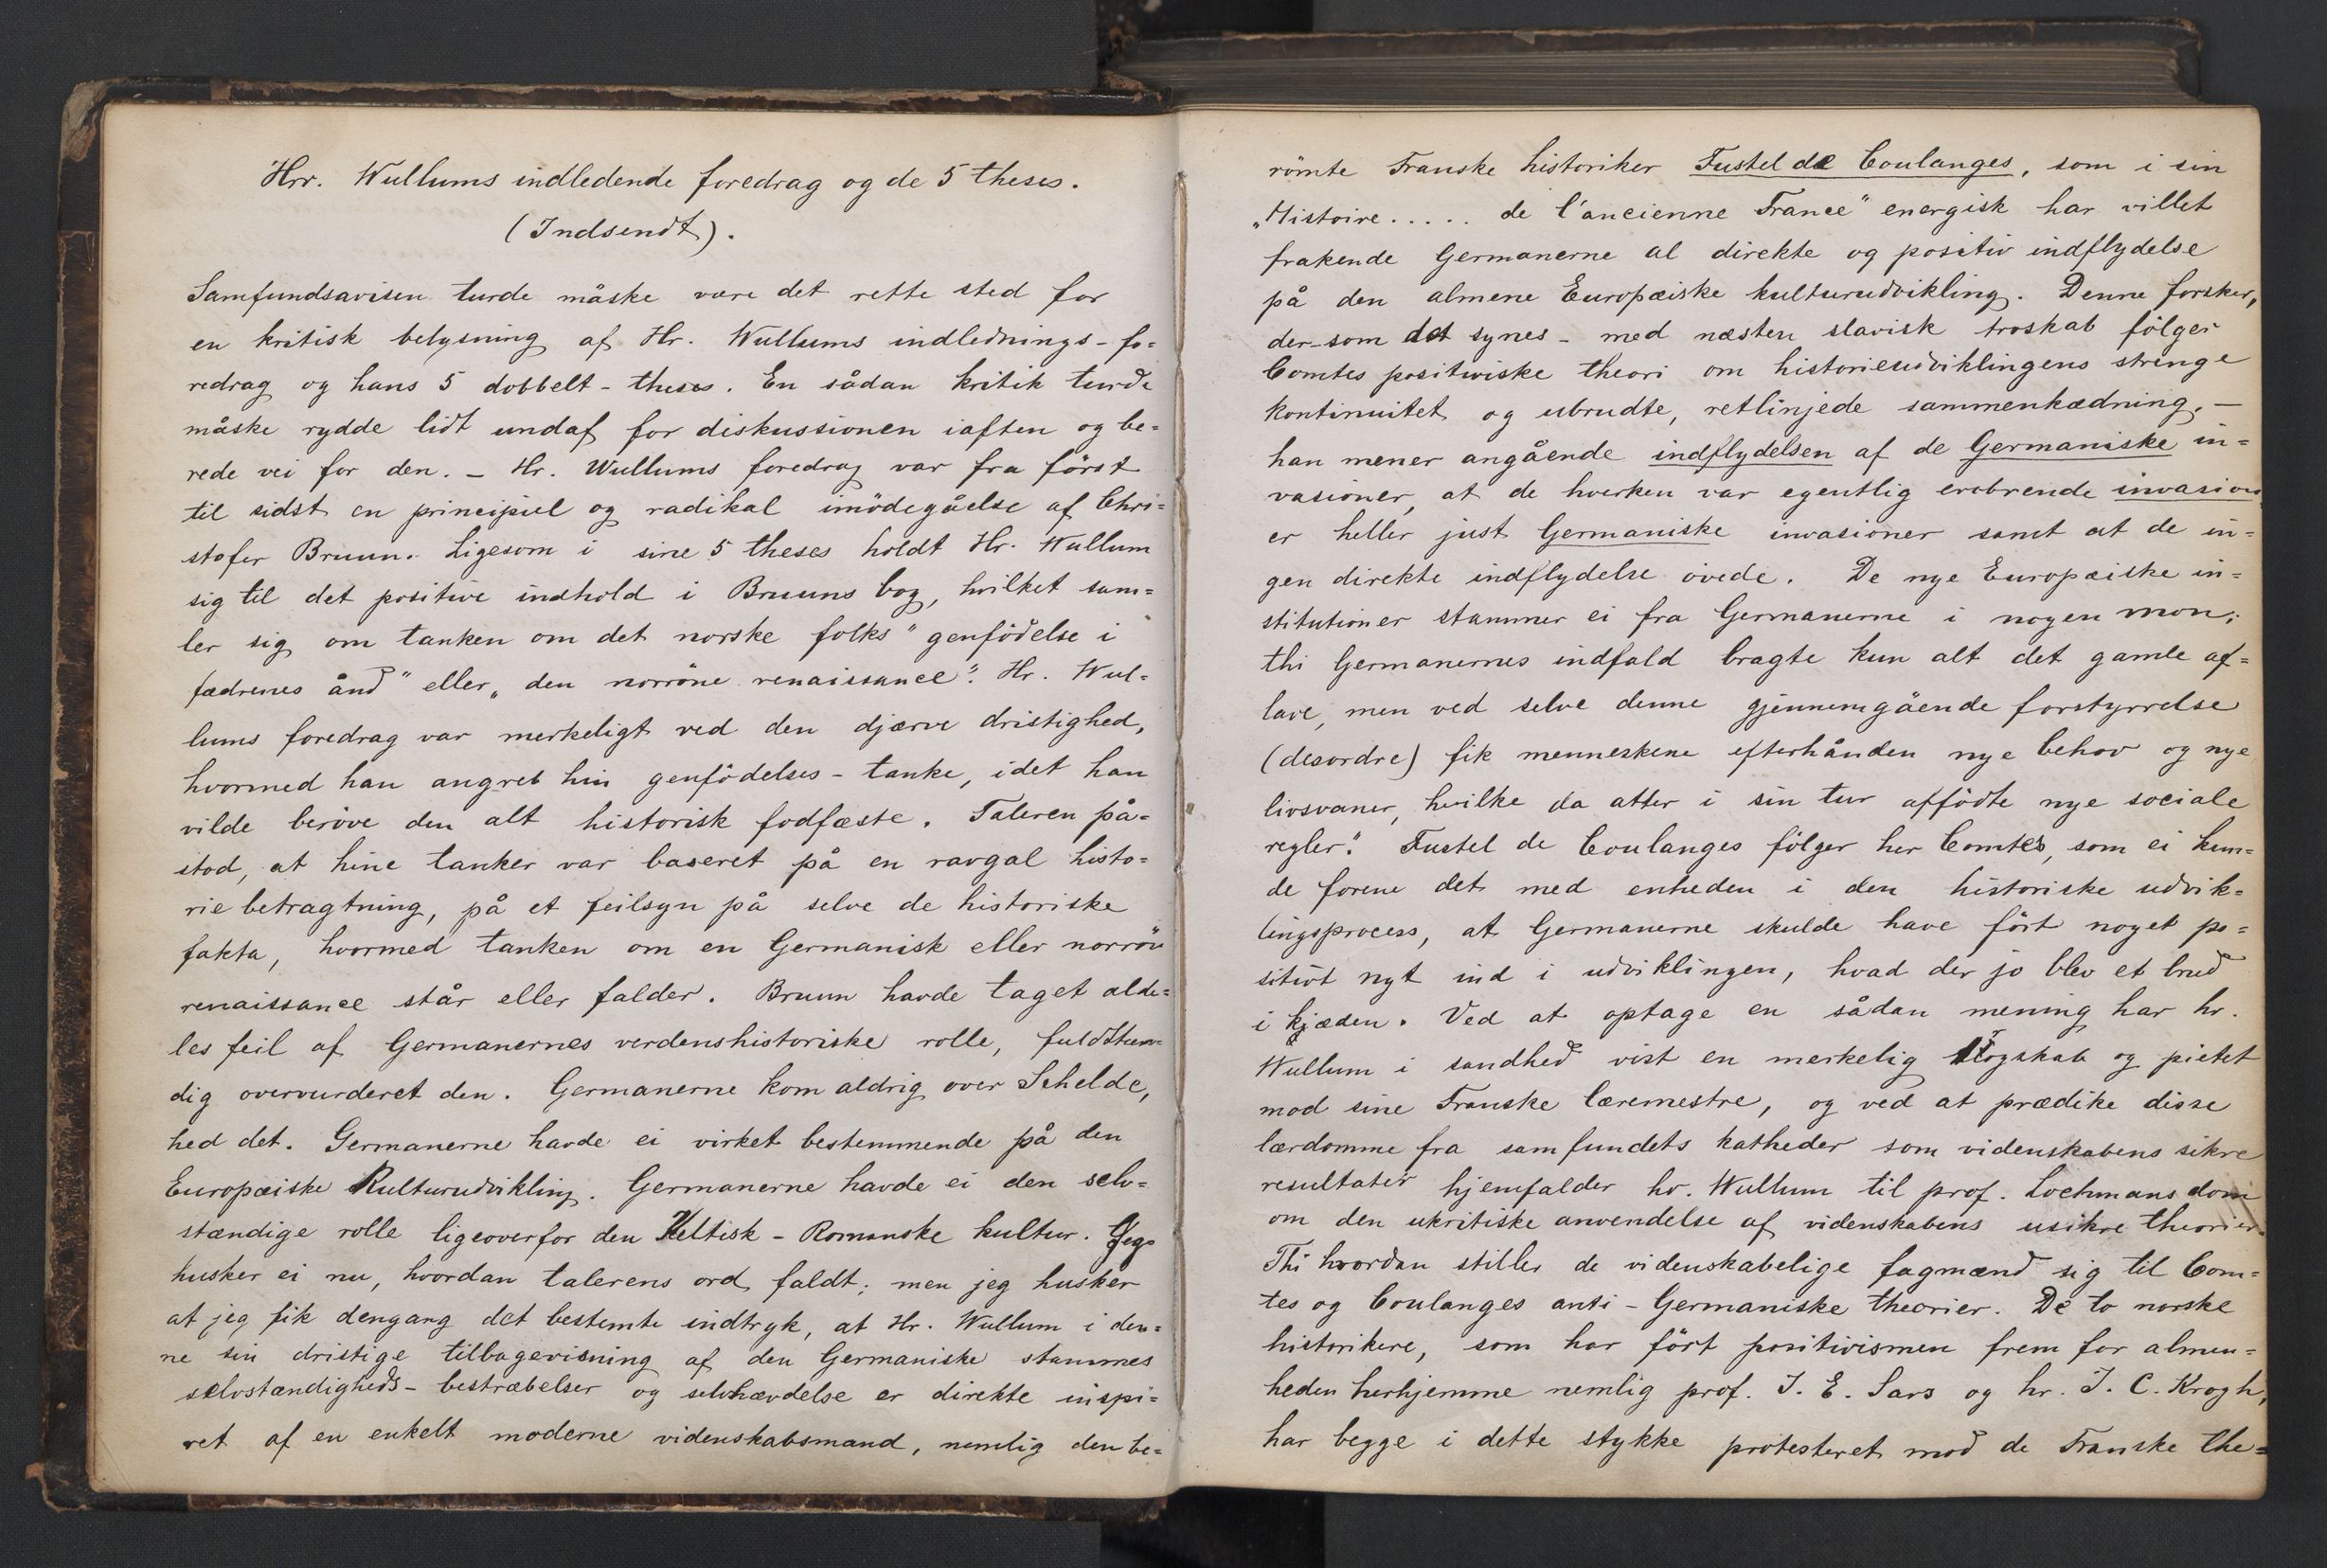 Hrr. Wullums indledende foredrag og de 5 theses.
(Indsendt).
Samfundsavisen turde måske være det rette sted for
en kritisk belysning af Hr. Wullums indlednings-fo=
redrag og hans 5 dobbelt-theses. En sådan kritik turde
måske rydde lidt undaf for diskussionen iaften og be=
rede vei for den. – Hr. Wullums foredrag var fra først
til sidst en principiel og radikal imödegåelse af Chri=
stofer Bruun. Ligesom i sine 5 theses holdt Hr. Wullum
sig til det positive indhold i Bruuns bog, hvilket sam=
ler sig om tanken om det norske folks "genfödelse i
fædrenes ånd" eller „den norröne renaissance". Hr. Wul=
lums foredrag var merkeligt ved den djærve dristighed,
hvormed han angreb hin genfödelses-tanke, idet han
vilde beröve den alt historisk fodfæste. Taleren på=
stod, at hine tanker var baseret på en ravgal histo=
riebetragtning, på et feilsyn på selve de historiske
fakta, hvormed tanken om en Germanisk eller norrön
renaissance står eller falder. Bruun havde taget alde=
les feil af Germanernes verdenshistoriske rolle, fuldstæn=
dig overvurderet den. Germanerne kom aldrig over Schelde,
hed det. Germanerne havde ei virket bestemmende på den
Europæiske Kulturudvikling. Germanerne havde ei den selv=
stændige rolle ligeoverfor den Keltisk-Romanske kultur. Jeg
husker ei nu, hvordan talerens ord faldt; men jeg husker
at jeg fik dengang det bestemte indtryk, at Hr. Wullum i den=
ne sin dristige tilbagevisning af den Germaniske stammes
selvstændigheds-bestræbelser og selvhævdelse er direkte inspi=
ret af en enkelt moderne videnskabsmand, nemlig den be=
römte Franske historiker Fustel de Coulanges, som i sin
„Histoire..... de l'ancienne France" energisk har villet
frakende Germanerne al direkte og positiv indflydelse
på den almene Europæiske kulturudvikling. Denne forsker,
der-som det synes – med næsten slavisk troskab fölger
Comtes positiviske theori om historieudviklingens strenge
kontinuitet og ubrudte, retlinjede sammenkædning, –
han mener angående indflydelsen af de Germaniske in=
vasioner, at de hverken var egentlig erobrende invasion
er heller just Germaniske invasioner samt at de in=
gen direkte indflydelse övede. De nye Europæiske in=
stitutioner stammer ei fra Germanerne i nogen mon;
thi Germanernes indfald bragte kun alt det gamle af=
lave, men ved selve denne gjennemgående forstyrrelse
(desordre) fik menneskene efterhånden nye behov og nye
livsvaner, hvilke da atter i sin tur affödte nye sociale
regler." Fustel de Coulanges fölger her Comtes, som ei kun=
de forene det med enheden i den historiske udvik=
lingsprocess, at Germanerne skulde have fört noget po=
sitivt nyt ind i udviklingen, hvad der jo blev et brud
i kjæden. Ved at optage en sådan mening har hr.
Wullum i sandhed vist en merkelig og pietet
mod sine Franske læremestre, og ved at prædike disse
lærdomme fra samfundets katheder som videnskabens sikre
resultater hjemfalder hr. Wullum til prof. Lochmans dom
om den ukritiske anvendelse af videnskabens usikre theorier.
Thi hvordan stiller de videnskabelige fagmænd sig til Com=
tes og Coulanges anti-Germaniske theorier. De to norske
historikere, som har fört positivismen frem for almen=
heden herhjemme nemlig prof. J. E. Sars og hr. J. C. Krogh,
har begge i dette stykke protesteret mod de Franske the=